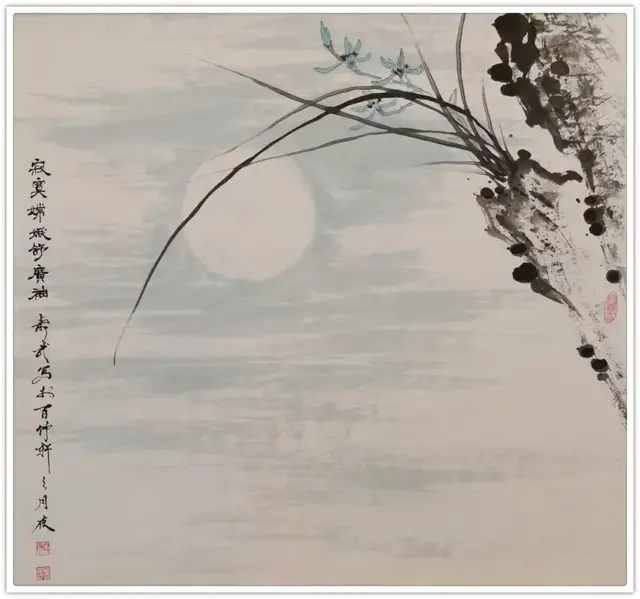 寂寞嫦娥舒廣袖 写於百竹軒之月夜